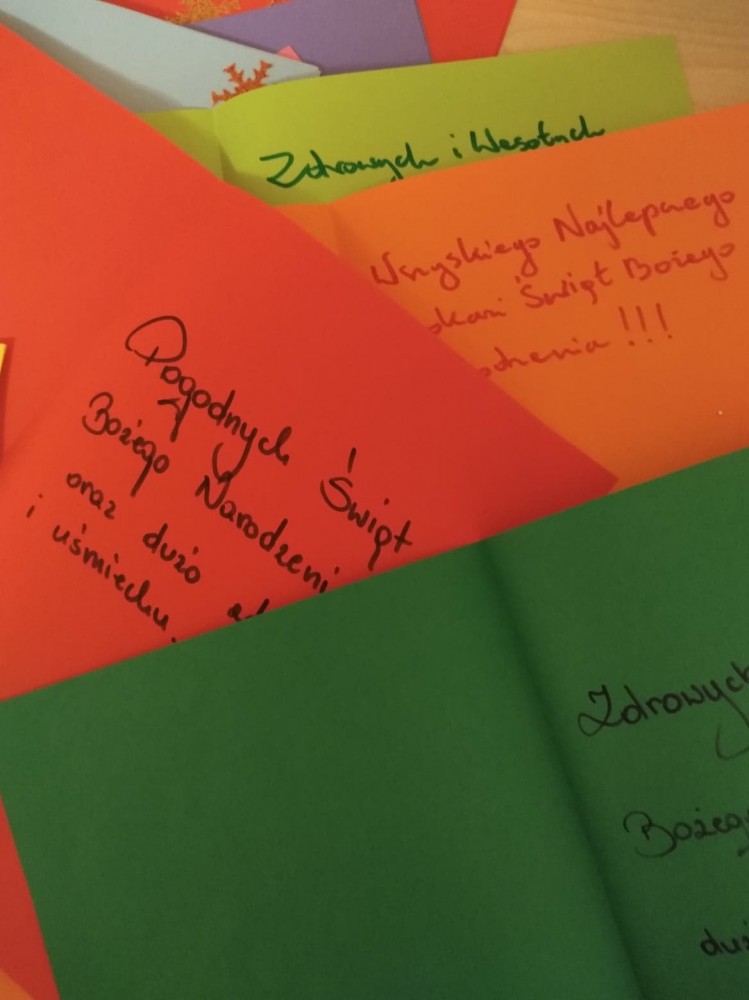 Zdrowych i Wesołych
Wszyskiego Najlepszego
Świąt Bożego
!!!
Pogodnych Świąt
Bożego Narodzeni
oraz dużo
i uśmiechu.
Zdrowych
Bożego